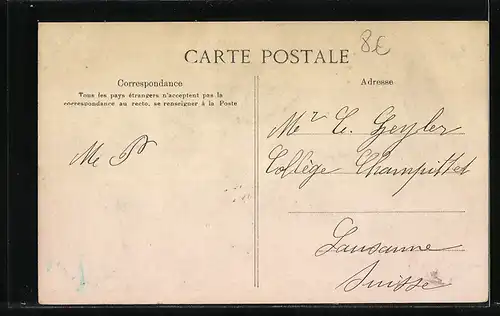 8€
CARTE POSTALE
Correspondance
Tous les pays étrangers n'acceptent pas la
correspondance au recto, se renseigner à la Poste
Adresse
Mr C. Geyler
Collège Champittet
Lausanne
Suisse